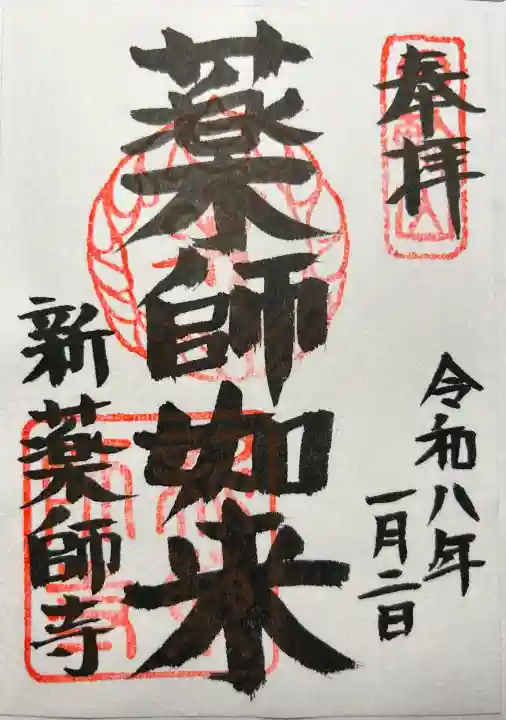 奉拝
令和八年
一月二日
薬師如来
新薬師寺